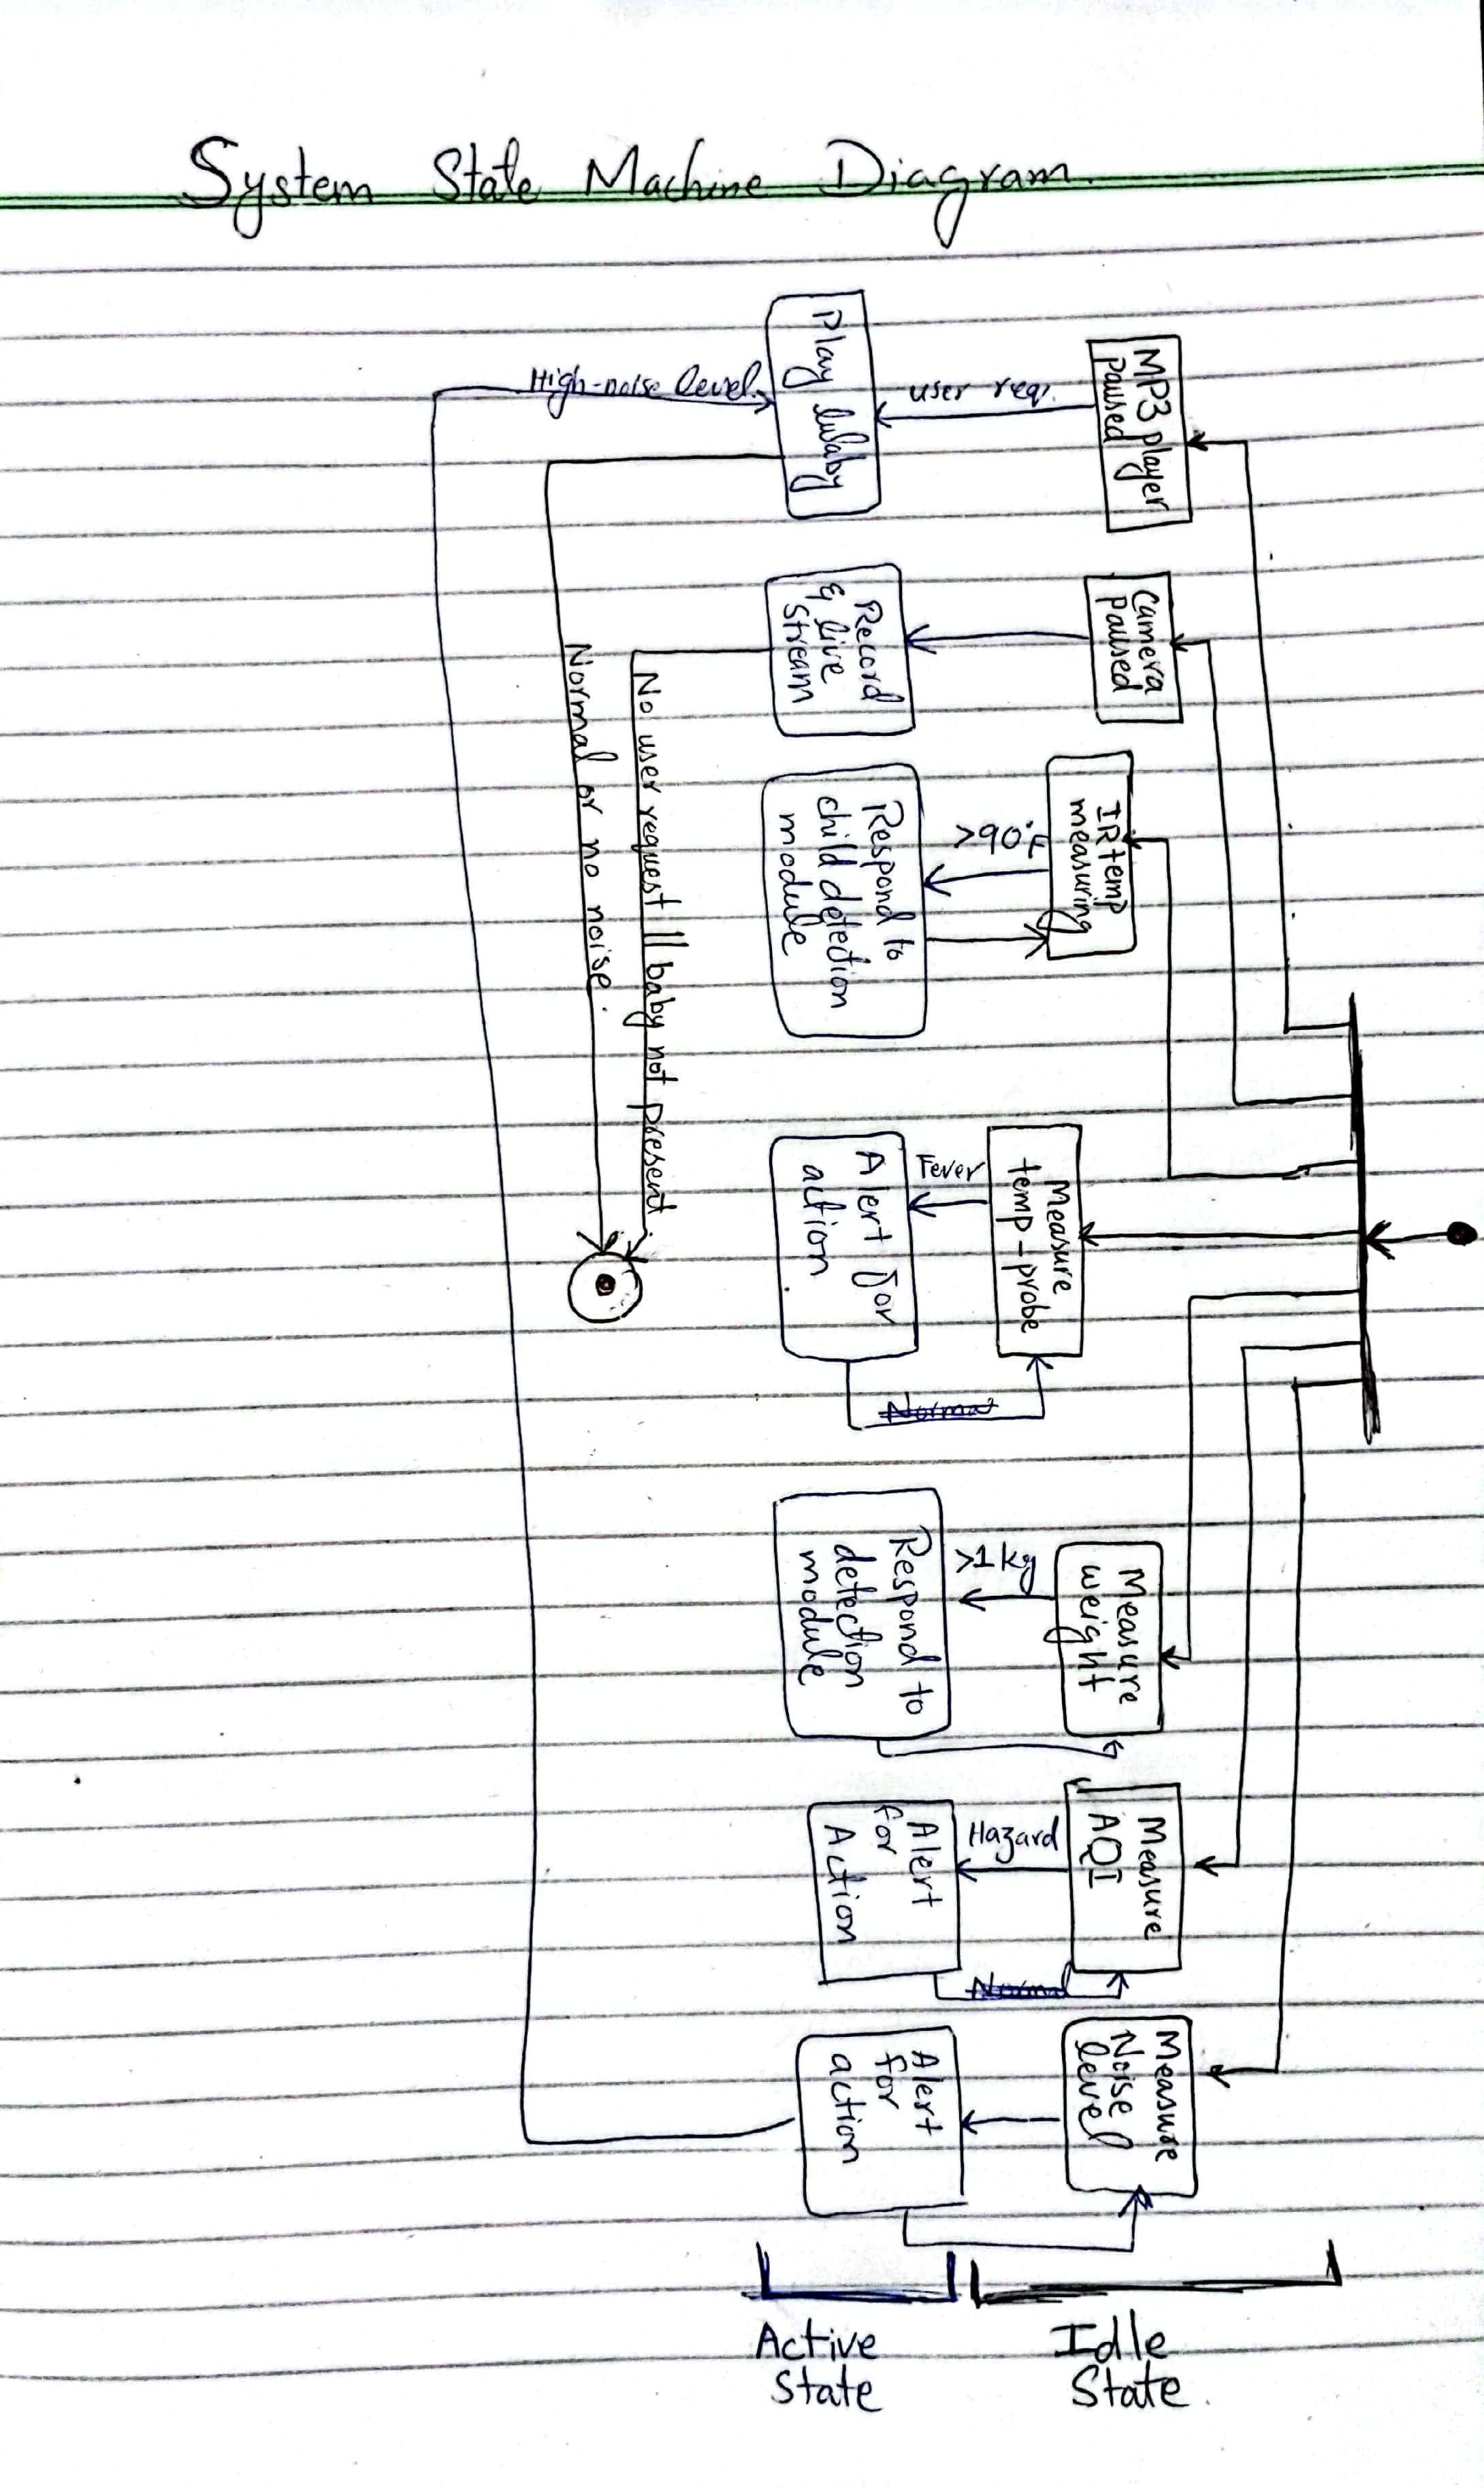 System State Machine Diagram.
MP3 player
paused
user req.
Play lulaby
High-noise level.
Camera
paused
Record
& live
stream
No user request || baby not present.
Normal or no noise.
IR temp
measuring
>90°F
Respond to
child detection
module
Measure
temp-probe
Fever
Alert for
action
Normal
Measure
weight
>1 kg
Respond to
detection
module
Measure
AQI
Hazard
Alert
for
Action
Normal
Measure
Noise
level
Alert
for
action
Active
State
Idle
State.